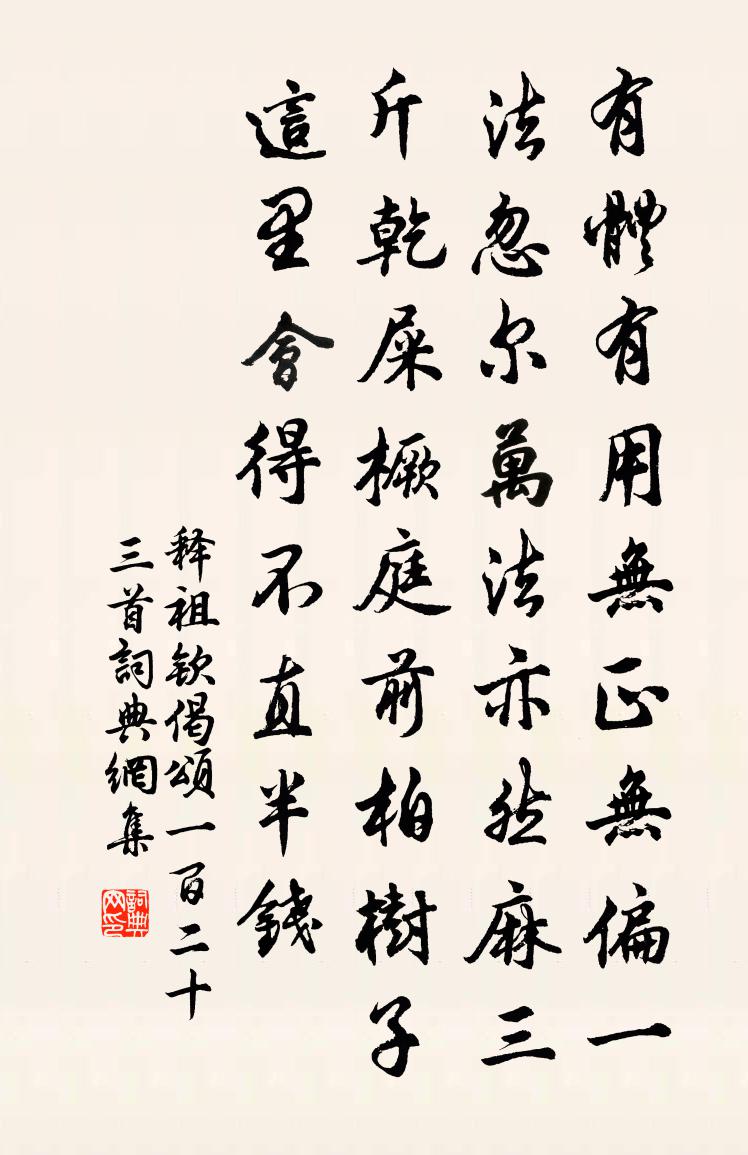 有體有用無正無偏一
法忽尔萬法亦然麻三
斤乾屎橛庭前柏樹子
這里會得不直半錢
释祖钦偈頌一百二十
三首詞典網集
詞典网印